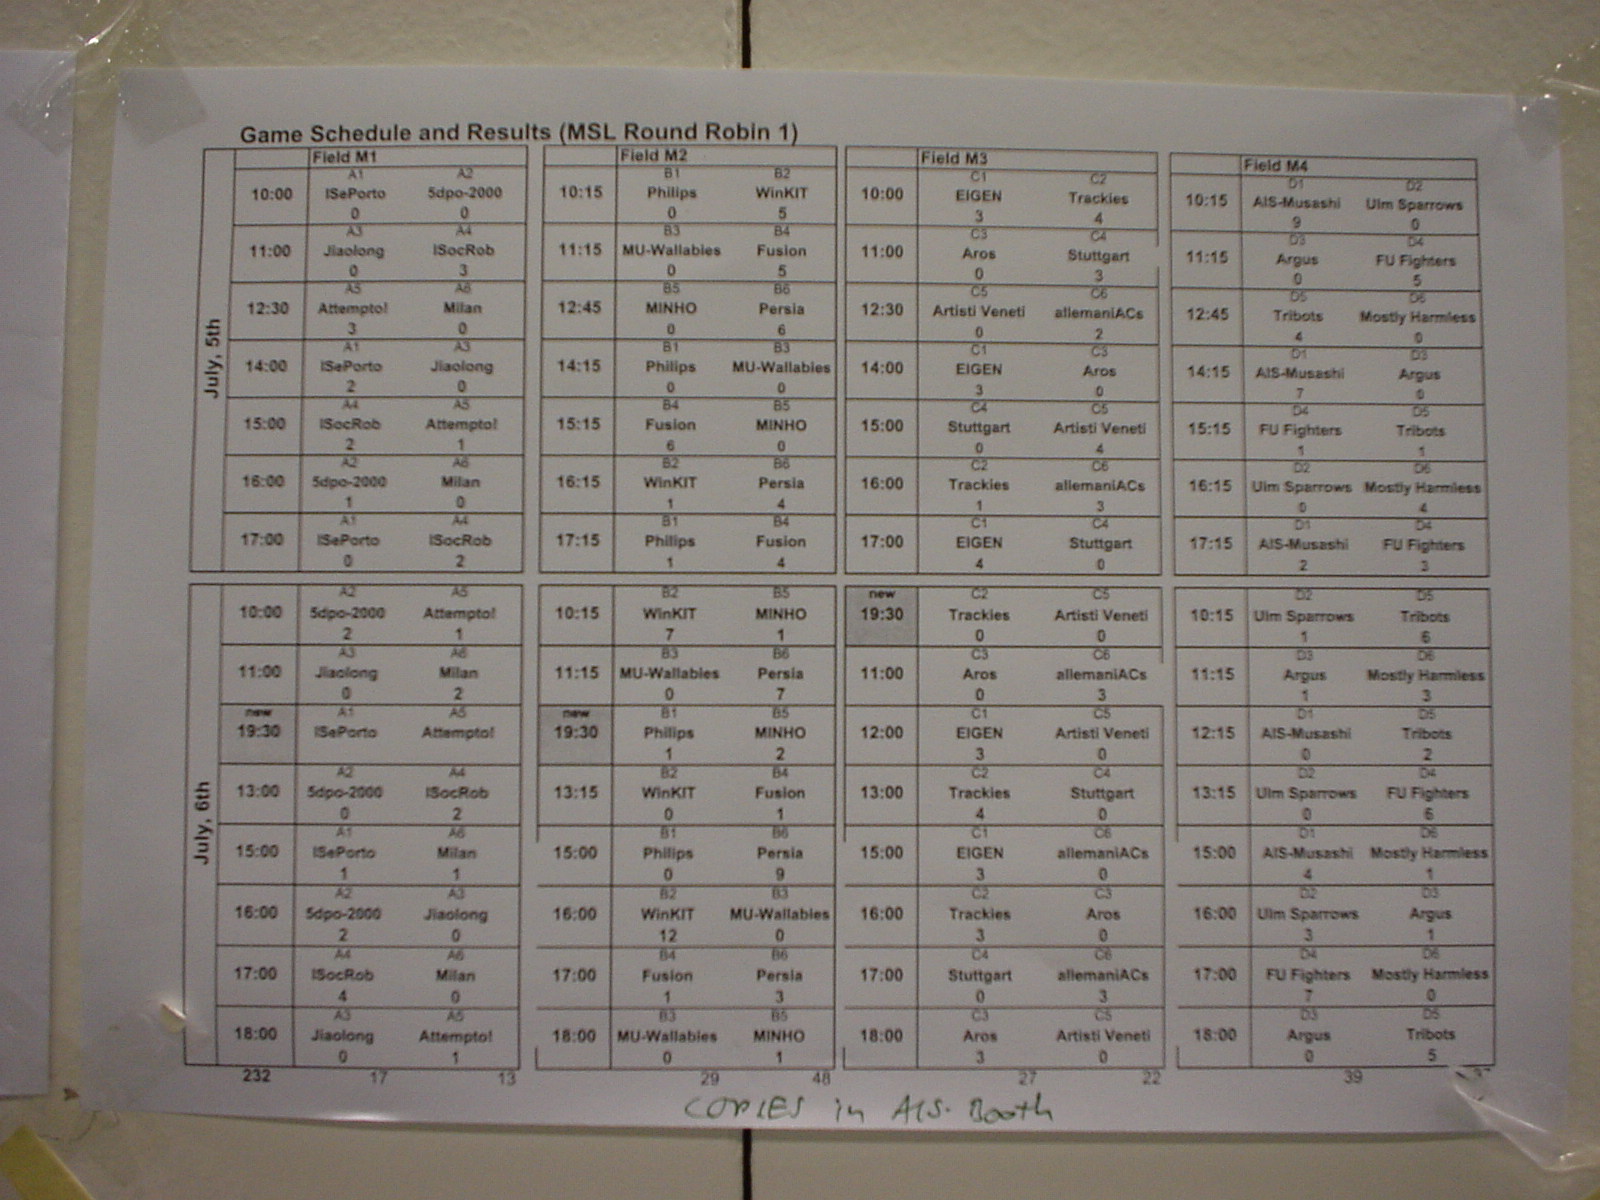 Game Schedule and Results (MSL Round Robin 1)
July, 5th
Field M1
A1 A2
10:00 ISePorto 5dpo-2000
0 0
A3 A4
11:00 Jiaolong ISocRob
0 3
A5 A6
12:30 Attempto! Milan
3 0
A1 A3
14:00 ISePorto Jiaolong
2 0
A4 A5
15:00 ISocRob Attempto!
2 1
A2 A6
16:00 5dpo-2000 Milan
1 0
A1 A4
17:00 ISePorto ISocRob
0 2
Field M2
B1 B2
10:15 Philips WinKIT
0 5
B3 B4
11:15 MU-Wallabies Fusion
0 5
B5 B6
12:45 MINHO Persia
0 6
B1 B3
14:15 Philips MU-Wallabies
0 0
B4 B5
15:15 Fusion MINHO
6 0
B2 B6
16:15 WinKIT Persia
1 4
B1 B4
17:15 Philips Fusion
1 4
Field M3
C1 C2
10:00 EIGEN Trackies
3 4
C3 C4
11:00 Aros Stuttgart
0 3
C5 C6
12:30 Artisti Veneti allemaniACs
0 2
C1 C3
14:00 EIGEN Aros
3 0
C4 C5
15:00 Stuttgart Artisti Veneti
0 4
C2 C6
16:00 Trackies allemaniACs
1 3
C1 C4
17:00 EIGEN Stuttgart
4 0
Field M4
D1 D2
10:15 AIS-Musashi Ulm Sparrows
9 0
D3 D4
11:15 Argus FU Fighters
0 5
D5 D6
12:45 Tribots Mostly Harmless
4 0
D1 D3
14:15 AIS-Musashi Argus
7 0
D4 D5
15:15 FU Fighters Tribots
1 1
D2 D6
16:15 Ulm Sparrows Mostly Harmless
0 4
D1 D4
17:15 AIS-Musashi FU Fighters
2 3
July, 6th
A2 A5
10:00 5dpo-2000 Attempto!
2 1
A3 A6
11:00 Jiaolong Milan
0 2
new A1 A5
19:30 ISePorto Attempto!
A2 A4
13:00 5dpo-2000 ISocRob
0 2
A1 A6
15:00 ISePorto Milan
1 1
A2 A3
16:00 5dpo-2000 Jiaolong
2 0
A4 A6
17:00 ISocRob Milan
4 0
A3 A5
18:00 Jiaolong Attempto!
0 1
B2 B5
10:15 WinKIT MINHO
7 1
B3 B6
11:15 MU-Wallabies Persia
0 7
new B1 B5
19:30 Philips MINHO
1 2
B2 B4
13:15 WinKIT Fusion
0 1
B1 B6
15:00 Philips Persia
0 9
B2 B3
16:00 WinKIT MU-Wallabies
12 0
B4 B6
17:00 Fusion Persia
1 3
B3 B5
18:00 MU-Wallabies MINHO
0 1
new C2 C5
19:30 Trackies Artisti Veneti
0 0
C3 C6
11:00 Aros allemaniACs
0 3
C1 C5
12:00 EIGEN Artisti Veneti
3 0
C2 C4
13:00 Trackies Stuttgart
4 0
C1 C6
15:00 EIGEN allemaniACs
3 0
C2 C3
16:00 Trackies Aros
3 0
C4 C6
17:00 Stuttgart allemaniACs
0 3
C3 C5
18:00 Aros Artisti Veneti
3 0
D2 D5
10:15 Ulm Sparrows Tribots
1 6
D3 D6
11:15 Argus Mostly Harmless
1 3
D1 D5
12:15 AIS-Musashi Tribots
0 2
D2 D4
13:15 Ulm Sparrows FU Fighters
0 6
D1 D6
15:00 AIS-Musashi Mostly Harmless
4 1
D2 D3
16:00 Ulm Sparrows Argus
3 1
D4 D6
17:00 FU Fighters Mostly Harmless
7 0
D3 D5
18:00 Argus Tribots
0 5
232 17 13 29 48 27 22 39
COPIES in AIS. Booth